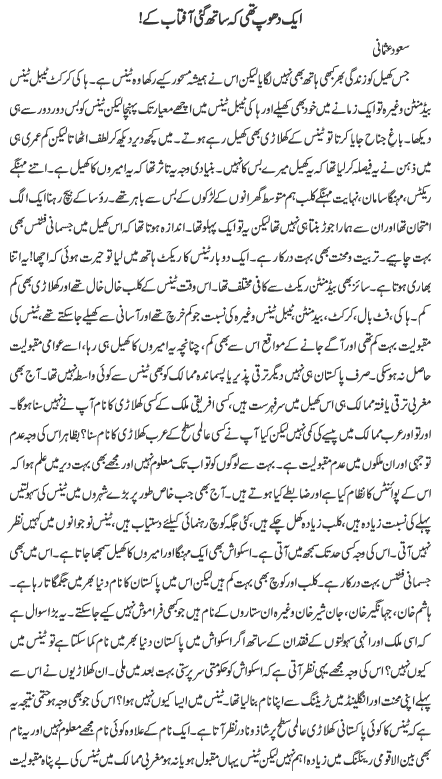 ایک دھوپ تھی کہ ساتھ گئی آفتاب کے!
سعود عثمانی
جس کھیل کو زندگی بھر کبھی ہاتھ بھی نہیں لگایا لیکن اس نے ہمیشہ مسحور کیے رکھا وہ ٹینس ہے۔ ہاکی کرکٹ ٹیبل ٹینس
بیڈمنٹن وغیرہ تو ایک زمانے میں خود بھی کھیلے اور ہاکی ٹیبل ٹینس میں اچھے معیار تک پہنچا لیکن ٹینس کو بس دور دور سے ہی
دیکھا۔ باغ جناح جایا کرتا تو ٹینس کے کھلاڑی بھی کھیل رہے ہوتے۔ میں کچھ دیر دیکھ کر لطف اٹھاتا لیکن کم عمری ہی
میں ذہن نے یہ فیصلہ کر لیا تھا کہ یہ کھیل میرے بس کا نہیں۔ بنیادی وجہ یہ تاثر تھا کہ یہ امیروں کا کھیل ہے۔ اتنے مہنگے
ریکٹس، مہنگا سامان، نہایت مہنگے کلب ہم متوسط گھرانوں کے لڑکوں کے بس سے باہر تھے۔ رؤسا کے بیچ رہنا ایک الگ
امتحان تھا اور ان سے ہمارا جوڑ بنتا ہی نہیں تھا لیکن یہ تو ایک پہلو تھا۔ اندازہ ہوتا تھا کہ اس کھیل میں جسمانی فٹنس بھی
بہت چاہیے۔ تربیت و محنت بھی بہت درکار ہے۔ ایک دو بار ٹینس کا ریکٹ ہاتھ میں لیا تو حیرت ہوئی کہ اچھا! یہ اتنا
بھاری ہوتا ہے۔ سائز بھی بیڈمنٹن ریکٹ سے کافی مختلف تھا۔ اس وقت ٹینس کے کلب خال خال تھے اور کھلاڑی بھی کم
کم۔ ہاکی، فٹ بال، کرکٹ، بیڈمنٹن، ٹیبل ٹینس وغیرہ کی نسبت جو کم خرچ تھے اور آسانی سے کھیلے جا سکتے تھے، ٹینس کی
مقبولیت بہت کم تھی اور آگے جانے کے مواقع اس سے بھی کم، چنانچہ یہ امیروں کا کھیل ہی رہا، اسے عوامی مقبولیت
حاصل نہ ہو سکی۔ صرف پاکستان ہی نہیں دیگر ترقی پذیر یا پسماندہ ممالک کو بھی ٹینس سے کوئی واسطہ نہیں تھا۔ آج بھی
مغربی ترقی یافتہ ممالک ہی اس کھیل میں سرفہرست ہیں، کسی افریقی ملک کے کسی کھلاڑی کا نام آپ نے نہیں سنا ہوگا۔
اور تو اور عرب ممالک میں پیسے کی کمی نہیں لیکن کیا آپ نے کسی عالمی سطح کے عرب کھلاڑی کا نام سنا؟ بظاہر اس کی وجہ عدم
توجہی اور ان ملکوں میں عدم مقبولیت ہے۔ بہت سے لوگوں کو تو اب تک معلوم نہیں اور مجھے بھی بہت دیر میں علم ہوا کہ
اس کے پوائنٹس کا نظام کیا ہے اور ضابطے کیا ہوتے ہیں۔ آج بھی جب خاص طور پر بڑے شہروں میں ٹینس کی سہولتیں
پہلے کی نسبت زیادہ ہیں، کلب زیادہ کھل چکے ہیں، کئی جگہ کوچ رہنمائی کیلئے دستیاب ہیں، ٹینس نوجوانوں میں کہیں نظر
نہیں آتی۔ اس کی وجہ کسی حد تک سمجھ میں آتی ہے۔ اسکواش بھی ایک مہنگا اور امیروں کا کھیل سمجھا جاتا ہے۔ اس میں بھی
جسمانی فٹنس بہت درکار ہے۔ کلب اور کوچ بھی بہت کم ہیں لیکن اس میں پاکستان کا نام دنیا بھر میں جگمگاتا رہا ہے۔
ہاشم خان، جہانگیر خان، جان شیر خان وغیرہ ان ستاروں کے نام ہیں جو کبھی فراموش نہیں کیے جا سکتے۔ یہ بڑا سوال ہے
کہ اسی ملک اور انہی سہولتوں کے فقدان کے ساتھ اگر اسکواش میں پاکستان دنیا بھر میں نام کما سکتا ہے تو ٹینس میں
کیوں نہیں؟ اس کی وجہ مجھے یہی نظر آتی ہے کہ اسکواش کو حکومتی سرپرستی بہت بعد میں ملی۔ ان کھلاڑیوں نے اس سے
پہلے اپنی محنت اور انگلینڈ میں ٹریننگ سے اپنا نام بنا لیا تھا۔ ٹینس میں ایسا کیوں نہیں ہوا؟ اس کی جو بھی وجہ ہو حتمی نتیجہ یہ
ہے کہ ٹینس کا کوئی پاکستانی کھلاڑی عالمی سطح پر شاذ و نادر نظر آتا ہے۔ ایک نام کے علاوہ کوئی نام مجھے معلوم نہیں اور یہ نام
بھی بین الاقوامی رینکنگ میں زیادہ اہم نہیں لیکن ٹینس یہاں مقبول ہو یا نہ ہو مغربی ممالک میں ٹینس کی بے پناہ مقبولیت